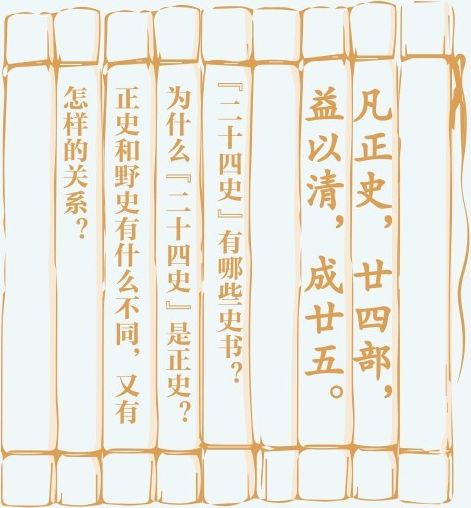 凡正史，廿四部，
益以清，成廿五。
『二十四史』有哪些史书？
为什么『二十四史』是正史？
正史和野史有什么不同，又有
怎样的关系？